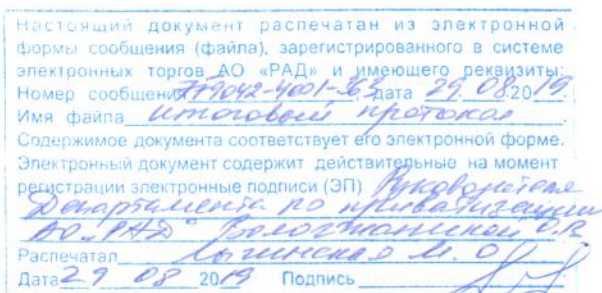 Настоящий документ распечатан из электронной
формы сообщения (файла), зарегистрированного в системе
электронных торгов АО «РАД» и имеющего реквизиты:
Номер сообщения дата 29.08.2019
Имя файла итоговый протокол
Содержимое документа соответствует его электронной форме.
Электронный документ содержит действительные на момент
регистрации электронные подписи (ЭП) Руководителя
Департамента по приватизации
АО "РАД"
Распечатал М. О.
Дата 29 08 2019 Подпись